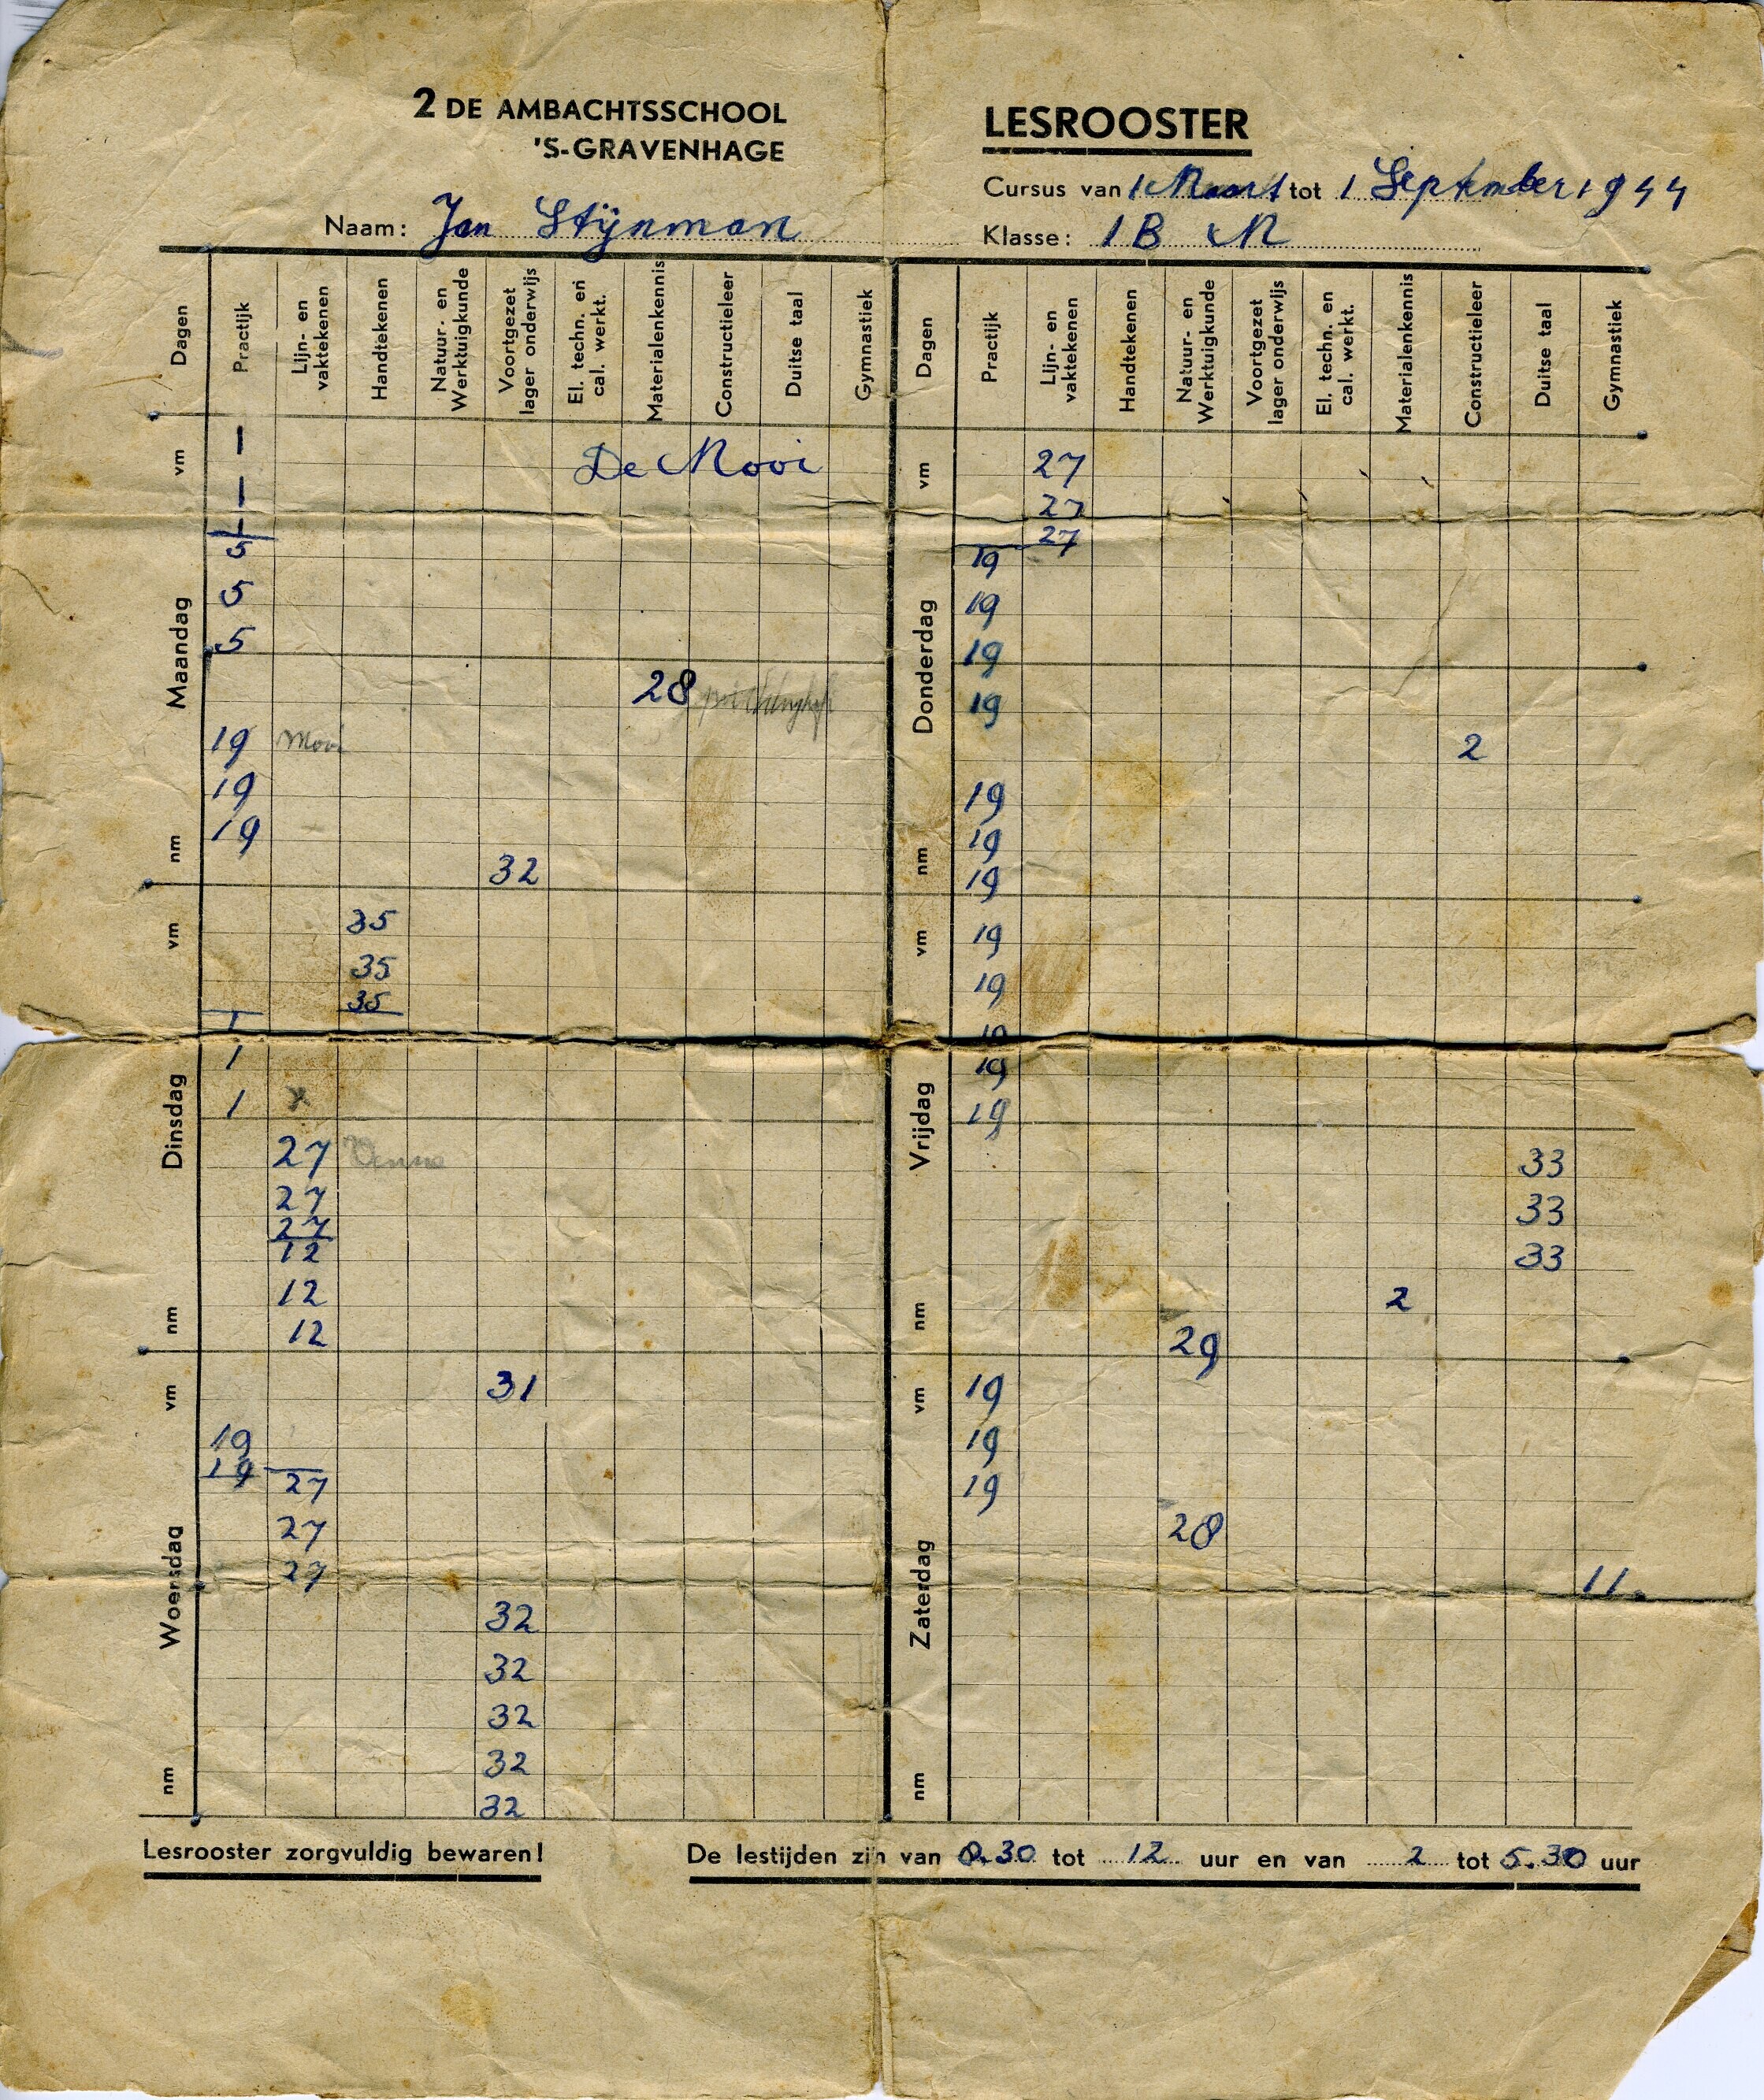 2 DE AMBACHTSSCHOOL
'S-GRAVENHAGE
Naam: Jan Stijnman
LESROOSTER
Cursus van 1 Maart tot 1 September 1944
Klasse: 1 B M
Dagen
Practijk
Lijn- en vaktekenen
Handtekenen
Natuur- en Werktuigkunde
Voortgezet lager onderwijs
El. techn. en cal. werkt.
Materialenkennis
Constructieleer
Duitse taal
Gymnastiek
Maandag
vm
De Mooi
5
5
5
28
19 Mooi
19
19
nm
32
Dinsdag
vm
35
35
35
1
1
1 x
27
27
27
12
12
nm
12
Woensdag
vm
31
19
19
27
27
27
32
32
32
32
nm
32
Dagen
Practijk
Lijn- en vaktekenen
Handtekenen
Natuur- en Werktuigkunde
Voortgezet lager onderwijs
El. techn. en cal. werkt.
Materialenkennis
Constructieleer
Duitse taal
Gymnastiek
Donderdag
vm
27
27
27
19
19
19
19
2
19
19
nm
19
Vrijdag
vm
19
19
19
19
19
33
33
33
2
nm
29
Zaterdag
vm
19
19
19
28
11
nm
Lesrooster zorgvuldig bewaren!
De lestijden zijn van 8.30 tot 12 uur en van 2 tot 5.30 uur